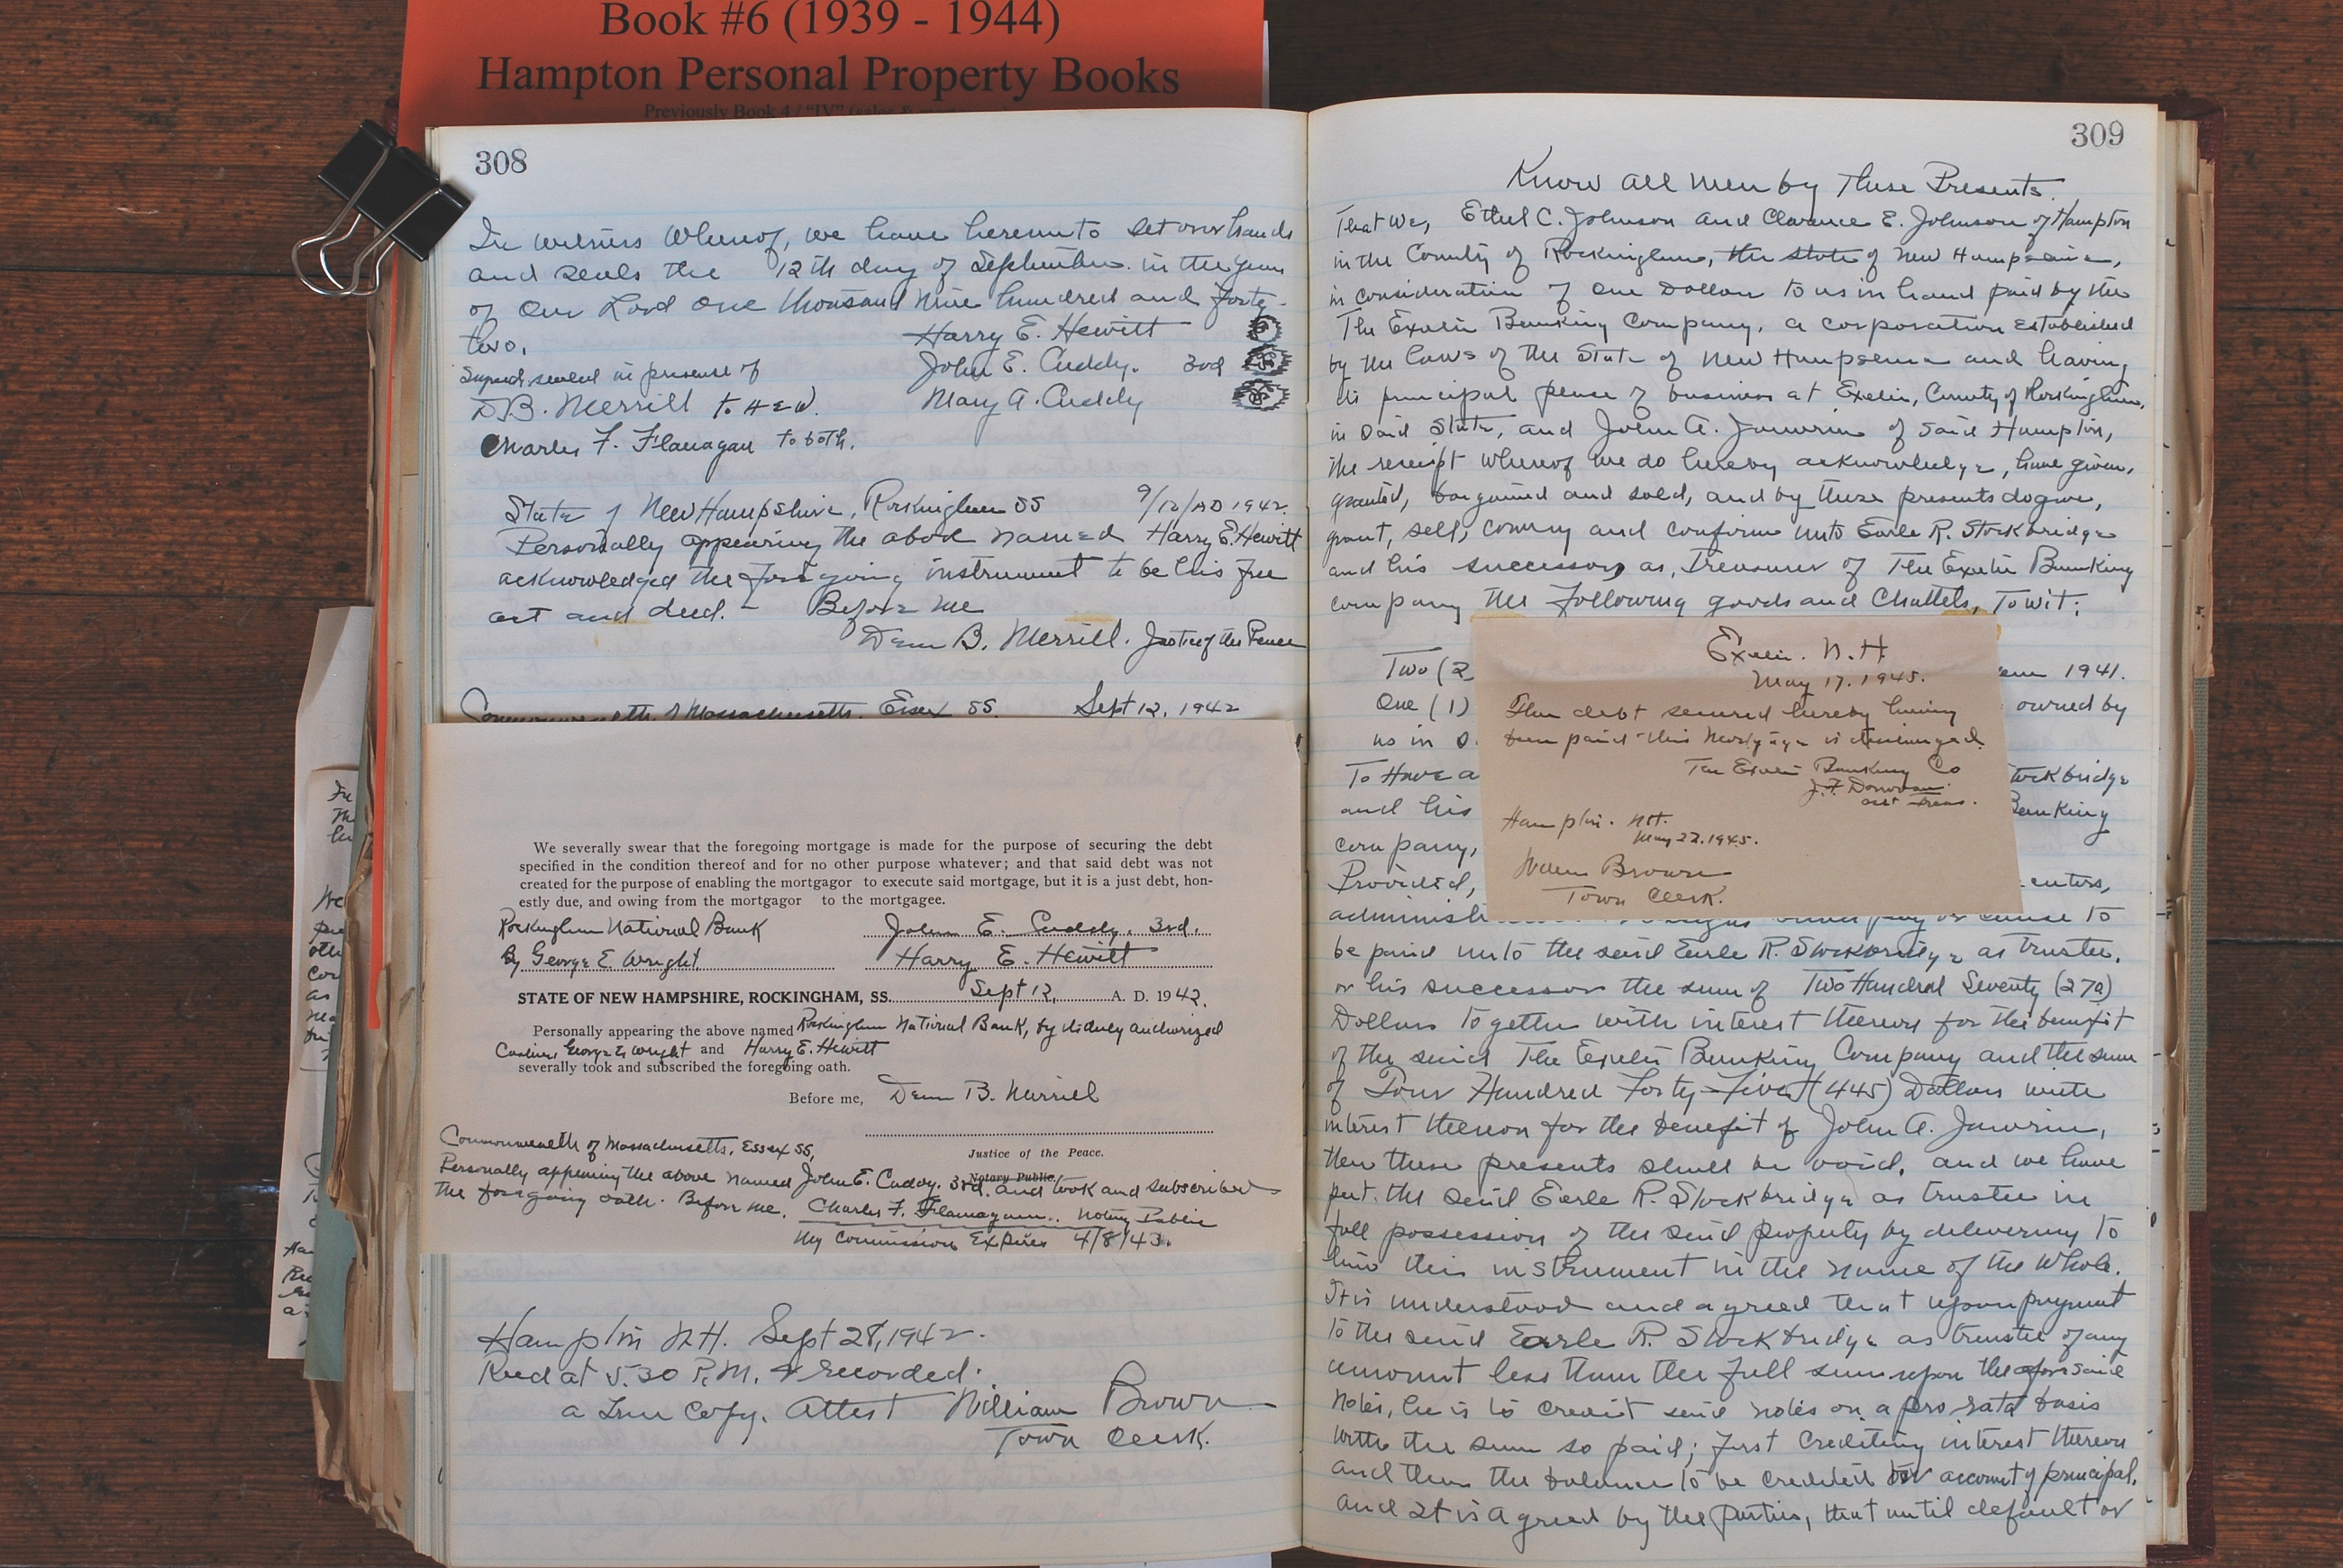 Book #6 (1939 - 1944)
Hampton Personal Property Books
Previously Book 4 / "IV" (sales &
308
In Witness Whereof, we have hereunto set our hands
and seals the 12th day of September in the year
of Our Lord One thousand Nine hundred and forty-
two.
Harry E. Hewitt
John E. Cuddy. 3rd
Mary A. Cuddy
Signed, sealed in presence of
D B. Merrill to H E W.
Charles F. Flanagan to both.
State of New Hampshire, Rockingham SS 9/12/AD 1942.
Personally appearing the above named Harry E. Hewitt
acknowledged the foregoing instrument to be his free
act and deed. - Before me
Dean B. Merrill. Justice of the Peace
Commonwealth of Massachusetts. Essex SS. Sept 12, 1942
We severally swear that the foregoing mortgage is made for the purpose of securing the debt
specified in the condition thereof and for no other purpose whatever; and that said debt was not
created for the purpose of enabling the mortgagor to execute said mortgage, but it is a just debt, hon-
estly due, and owing from the mortgagor to the mortgagee.
Rockingham National Bank John E. Cuddy. 3rd.
By George E Wright Harry E. Hewitt
STATE OF NEW HAMPSHIRE, ROCKINGHAM, SS. Sept 12, A. D. 1942.
Personally appearing the above named Rockingham National Bank, by its duly authorized
Cashier, George E Wright and Harry E. Hewitt
severally took and subscribed the foregoing oath.
Before me, Dean B. Merrill
Justice of the Peace.
Notary Public.
Commonwealth of Massachusetts, Essex SS,
Personally appearing the above named John E. Cuddy. 3rd. and took and subscribed
the foregoing oath. Before me. Charles F. Flanagan.. Notary Public
My Commission Expires 4/8/43.
Hampton N.H. Sept 28, 1942.
Recd at 5.30 P.M. & recorded.
a True Copy. Attest William Brown
Town Clerk.
309
Know All Men by These Presents.
That We, Ethel C. Johnson and Clarence E. Johnson of Hampton
in the County of Rockingham, the state of New Hampshire,
in consideration of One Dollar to us in hand paid by the
The Exeter Banking Company, a corporation established
by the laws of the State of New Hampshire and having
its principal place of business at Exeter, County of Rockingham,
in said State, and John A. Janvrin of said Hampton,
the receipt whereof we do hereby acknowledge, have given,
granted, bargained and sold, and by these presents do give,
grant, sell, convey and confirm unto Earle R. Stockbridge
and his successors as, Treasurer of The Exeter Banking
company the following goods and Chattels, To wit;
Two (2 1941.
One (1) owned by
us in S.
To Have a tockbridge
and his Banking
company,
Provided,
Exeter. N.H.
May 17. 1945.
The debt secured hereby having
been paid this Mortgage is discharged.
The Exeter Banking Co
J. F. Donovan
asst treas.
Hampton. NH.
May 22. 1945.
William Brown
Town Clerk.
pay or cause to
be paid unto the said Earle R. Stockbridge as trustee,
or his successor the sum of Two Hundred Seventy (270)
Dollars together with interest thereon for the benefit
of the said The Exeter Banking Company and the sum
of Four Hundred Forty-Five (445) Dollars with
interest thereon for the benefit of John A. Janvrin,
then these presents shall be void, and we have
put the said Earle R. Stockbridge as trustee in
full possession of the said property by delivering to
him this instrument in the name of the whole.
It is understood and agreed that upon payment
to the said Earle R. Stockbridge as trustee of any
amount less than the full sum upon the aforesaid
Notes, he is to credit said notes on a pro rata basis
with the sum so paid; first crediting interest thereon
and then the balance to be credited to account of principal.
And it is agreed by the parties, that until default or